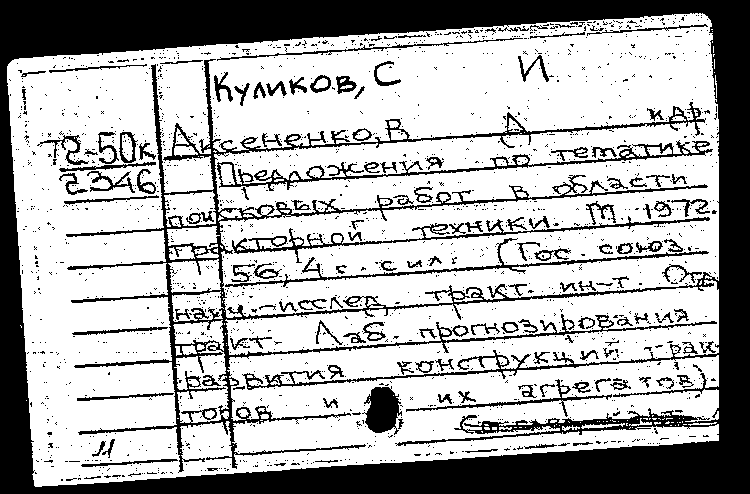 Куликов, С И
72-50к Аксененко, В. А и др.
2346 Предложения по тематике
поисковых работ в области
тракторной техники. М., 1972.
56, 4 с. с ил. (Гос. союз.
науч.-исслед. тракт. ин-т. Отд.
тракт. Лаб. прогнозирования
развития конструкций трак
торов и их агрегатов).
11